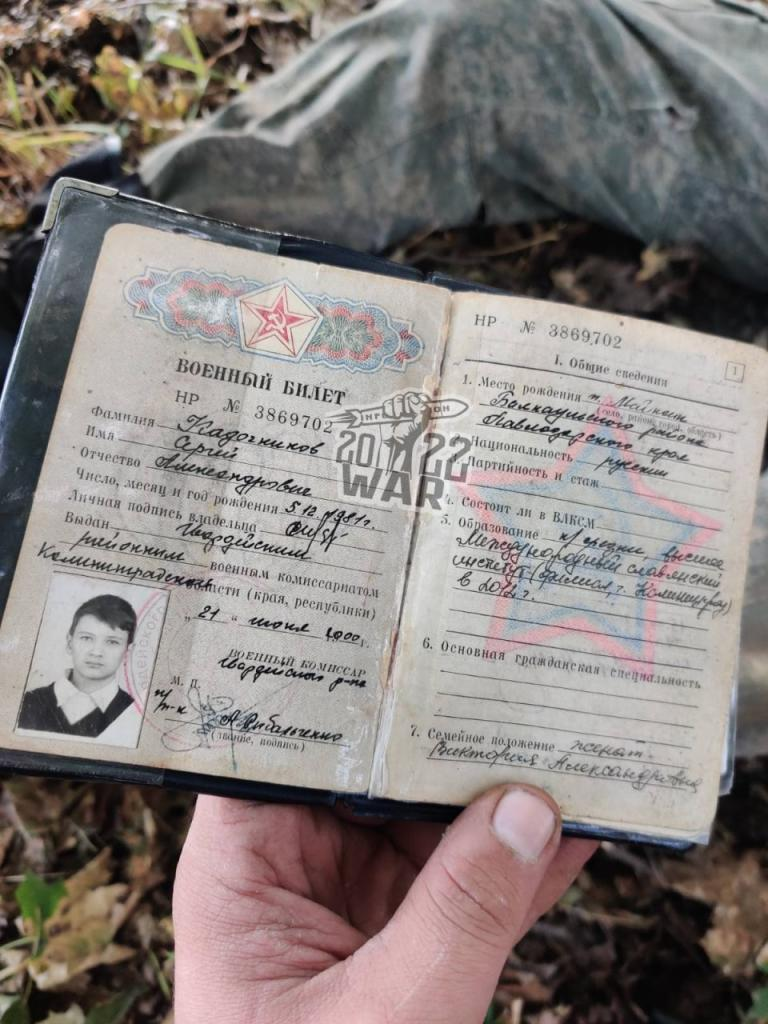 ВОЕННЫЙ БИЛЕТ
НР № 3869702
Фамилия Кадочников
Имя Сергей
Отчество Александрович
Число, месяц и год рождения 5.12.1981г.
Личная подпись владельца
Выдан Гвардейским
районным военным комиссариатом
Калининградской области (края, республики)
„ 21 “ июня 2000 г.
ВОЕННЫЙ КОМИССАР
Гвардейского р-на
М. П.
п/п-к
(звание, подпись)
НР № 3869702
1
I. Общие сведения
1. Место рождения
(село, район, город, область)
района
Павлодарского края
Национальность русский
Партийность и стаж
4. Состоит ли в ВЛКСМ
5. Образование высшее
Международный славянский
институт (филиал, г. Калининград)
в 2012 г.
6. Основная гражданская специальность
7. Семейное положение женат.
Виктория Александровна
20 22
WAR